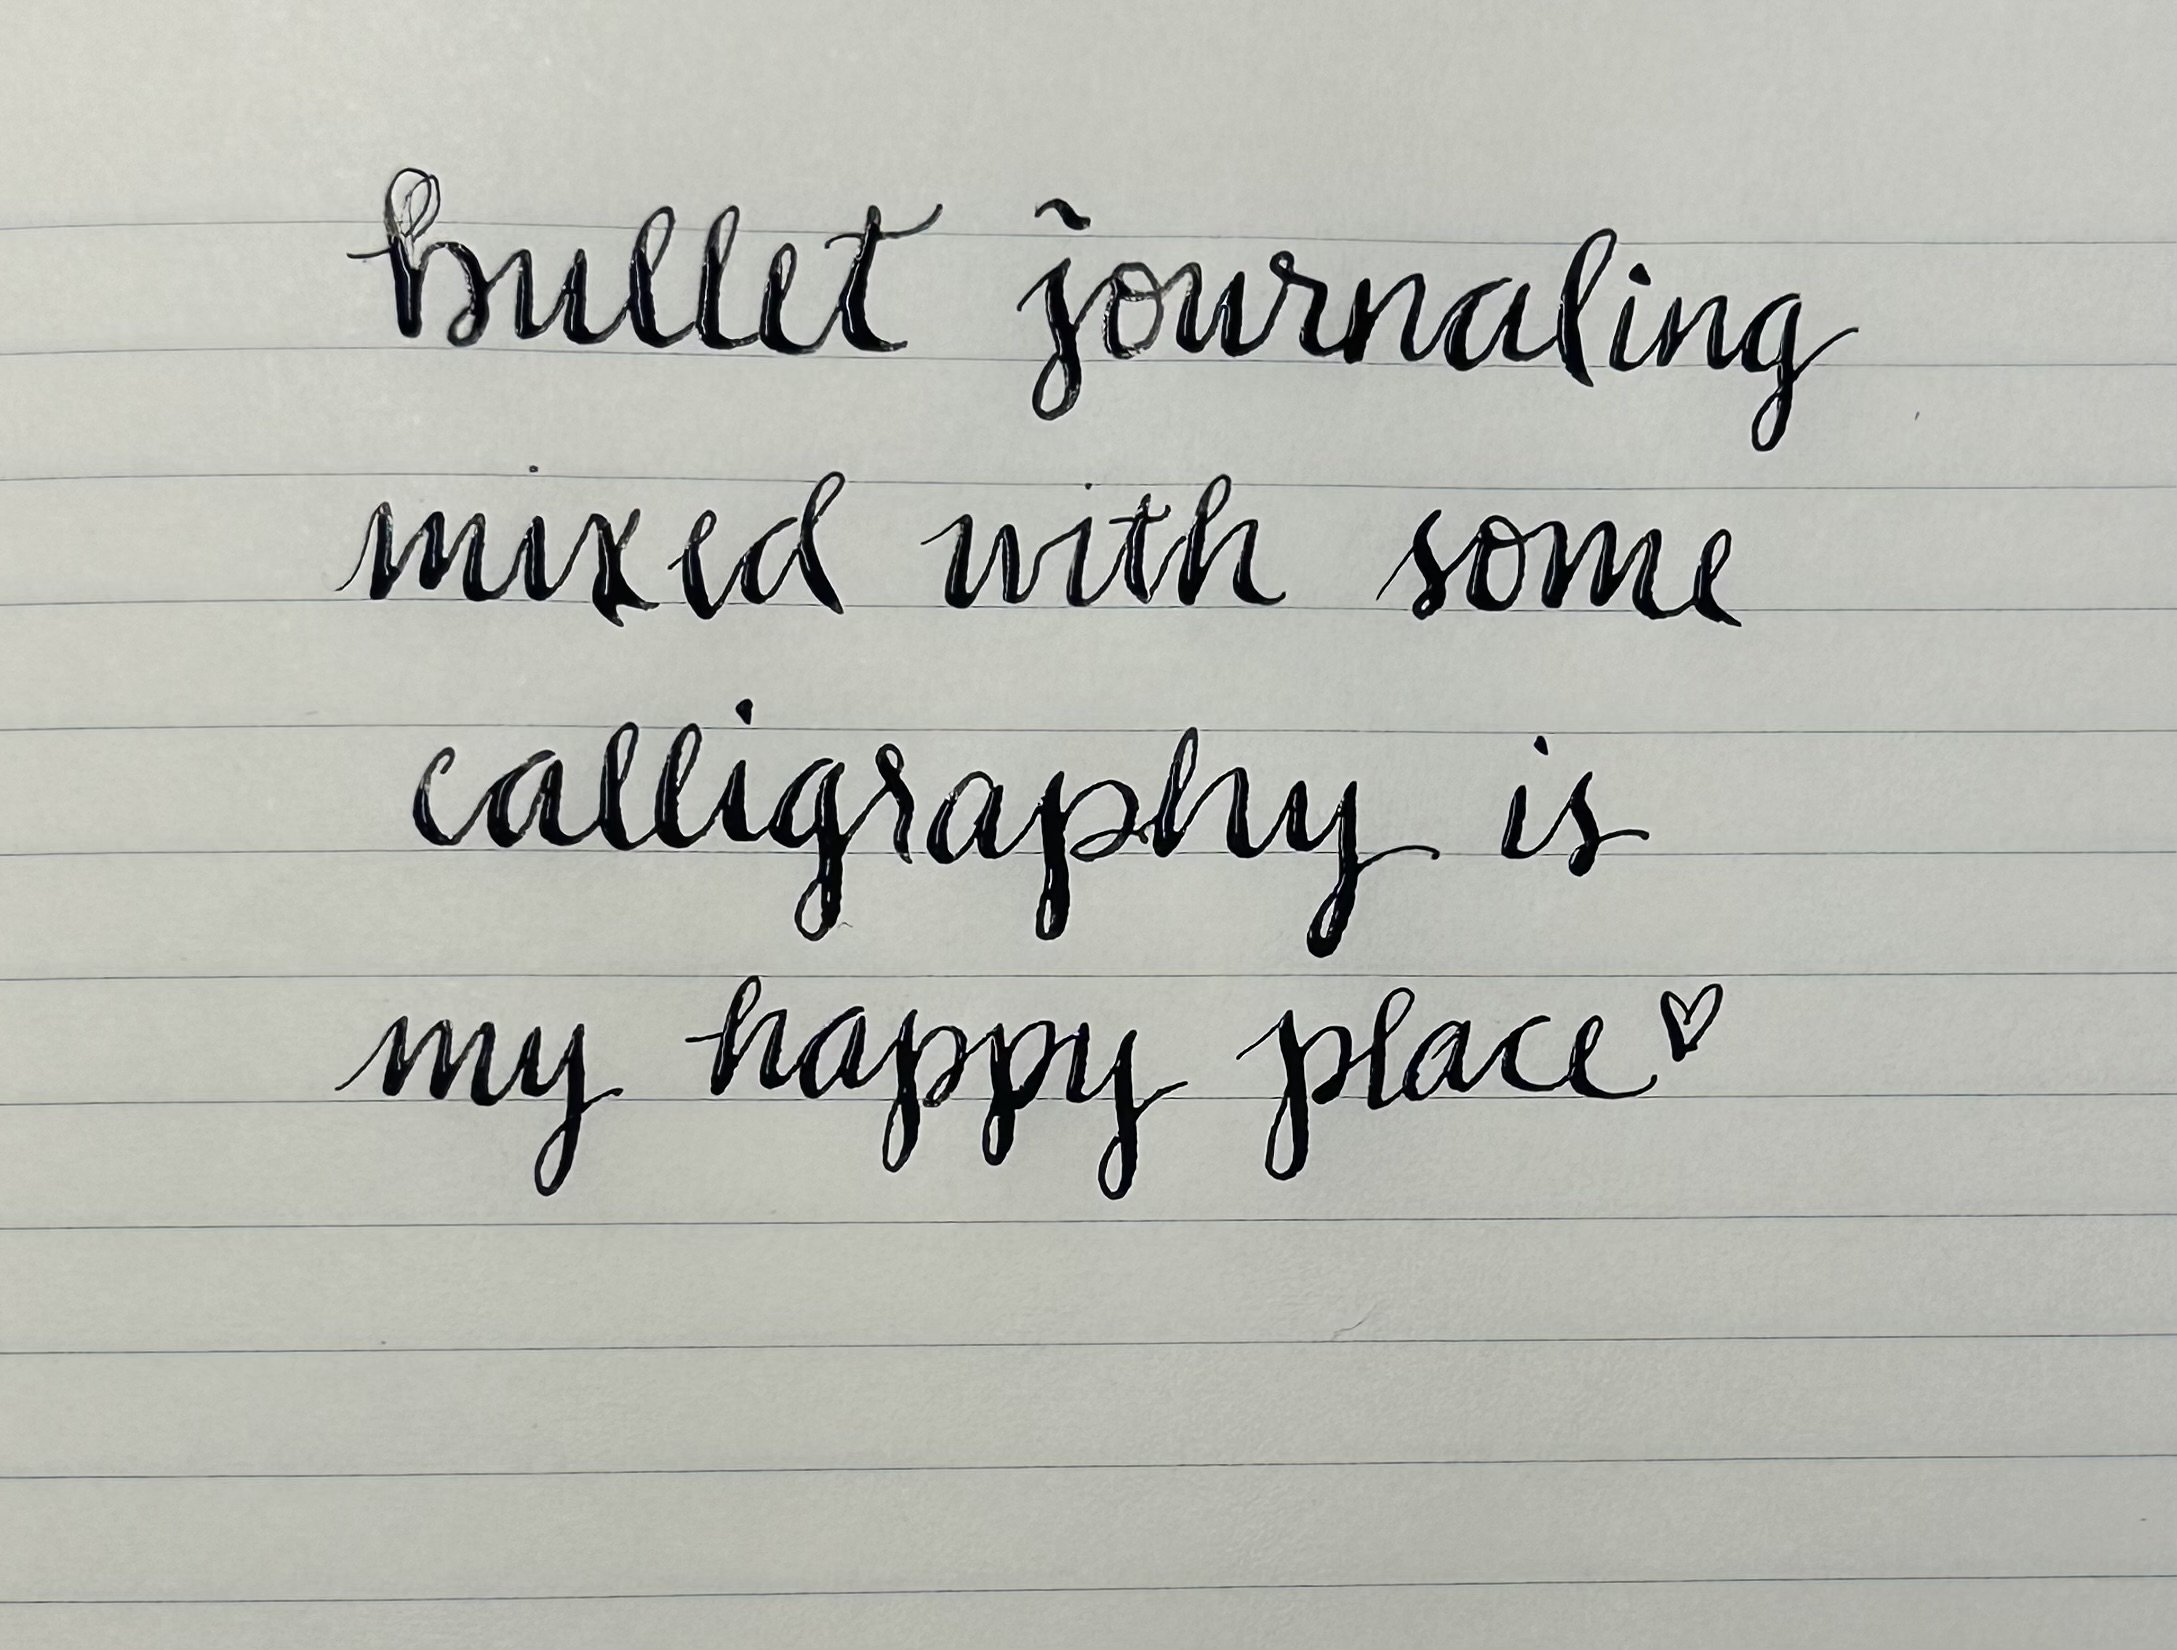 bullet journaling
mixed with some
calligraphy is
my happy place♡